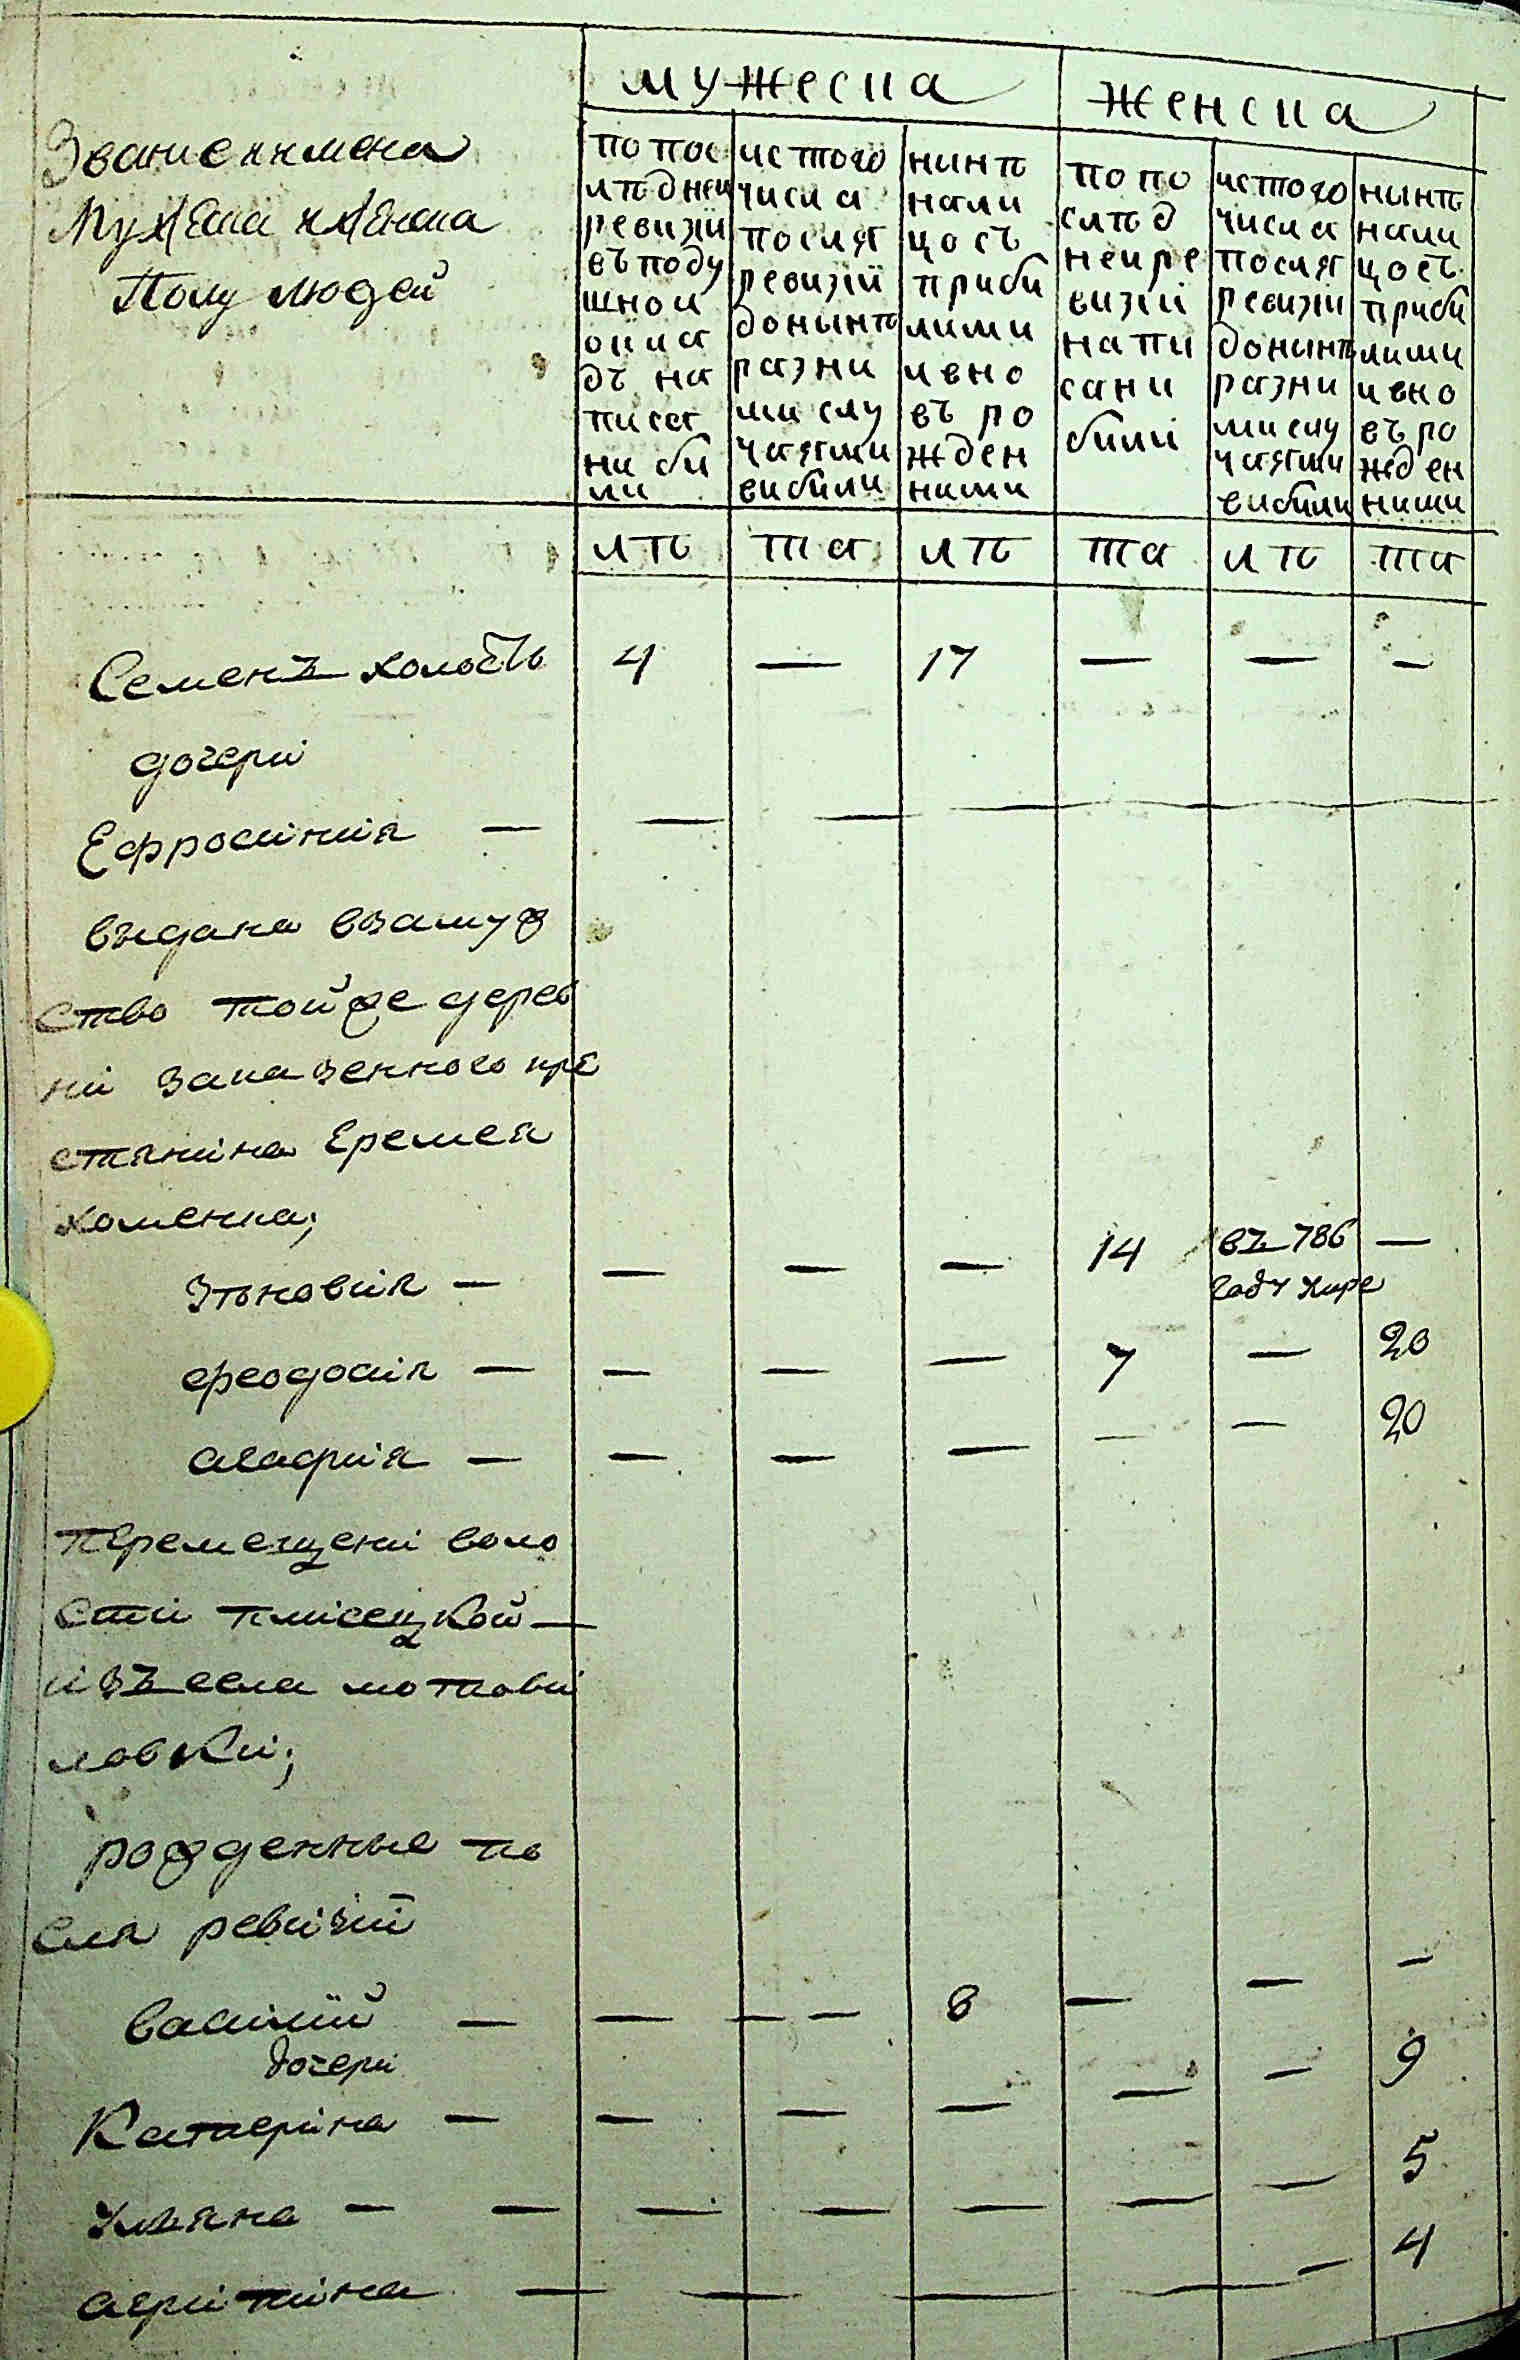 мужеска
женска
Звание и имена
Мужеска и женска
Полу людей
по пос
лѣдней
ревизїи
въ поду
шной
окла
дъ на
писа
ни би
ли
ис того
числа
послѣ
ревизїи
до нынѣ
разни
ми слу
чаями
вибили
нинѣ
нали
цо съ
приби
лими
и вно
въ ро
жден
ними
по по
слѣд
ней ре
визїи
напи
сани
билиі
ис того
числа
послѣ
ревизїи
до нинѣ
разни
ми слу
чаями
вибили
нынѣ
нали
цо съ
приби
лими
и вно
въ ро
жден
ними
лѣ та лѣ та лѣ та
Семенъ холостъ 4 — 17 — — —
дочери
Ефросиния — — — —
выдана взамуж
ство той же дерев
ни заказенного кре
стянина Еремея
хоменка;
Зѣновия — — — — 14 въ 786 —
году умре
феодосия — — — — 7 — 20
агафия — — — — — — 20
перемещени воло
сти плисецкой —
изъ села мотови
ловки;
рожденные по
сля ревизий
василий — — — — 8 — — —
дочери
Катерина — — — — — — 9
Уляна — — — — — — — 5
агрипина — — — — — 4